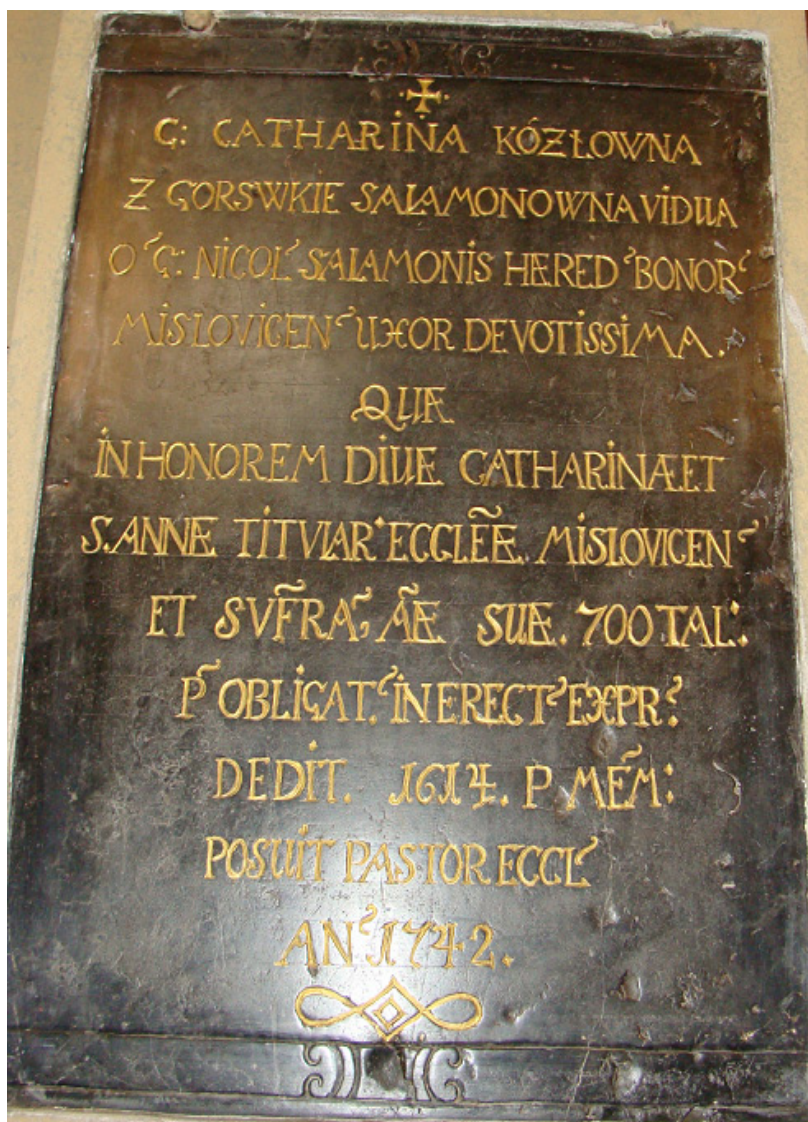 G: CATHARINA KÓZŁOWNA
Z GORSWKIE SALAMONOWNA VIDUA
O G: NICOL' SALAMONIS HÆRED' BONOR'
MISLOVICEN' UXOR DEVOTISSIMA.
QUÆ
IN HONOREM DIUÆ CATHARINÆ ET
S. ANNÆ TITVLAR' ECCLẼÆ MISLOVICEN'
ET SVF̃RA, ÃÆ SUÆ. 700 TAL:
P̃ OBLIGAT' IN ERECT' EXPR:
DEDIT. 1614. P MẼM:
POSUIT PASTOR ECCL'
AN' 1742.